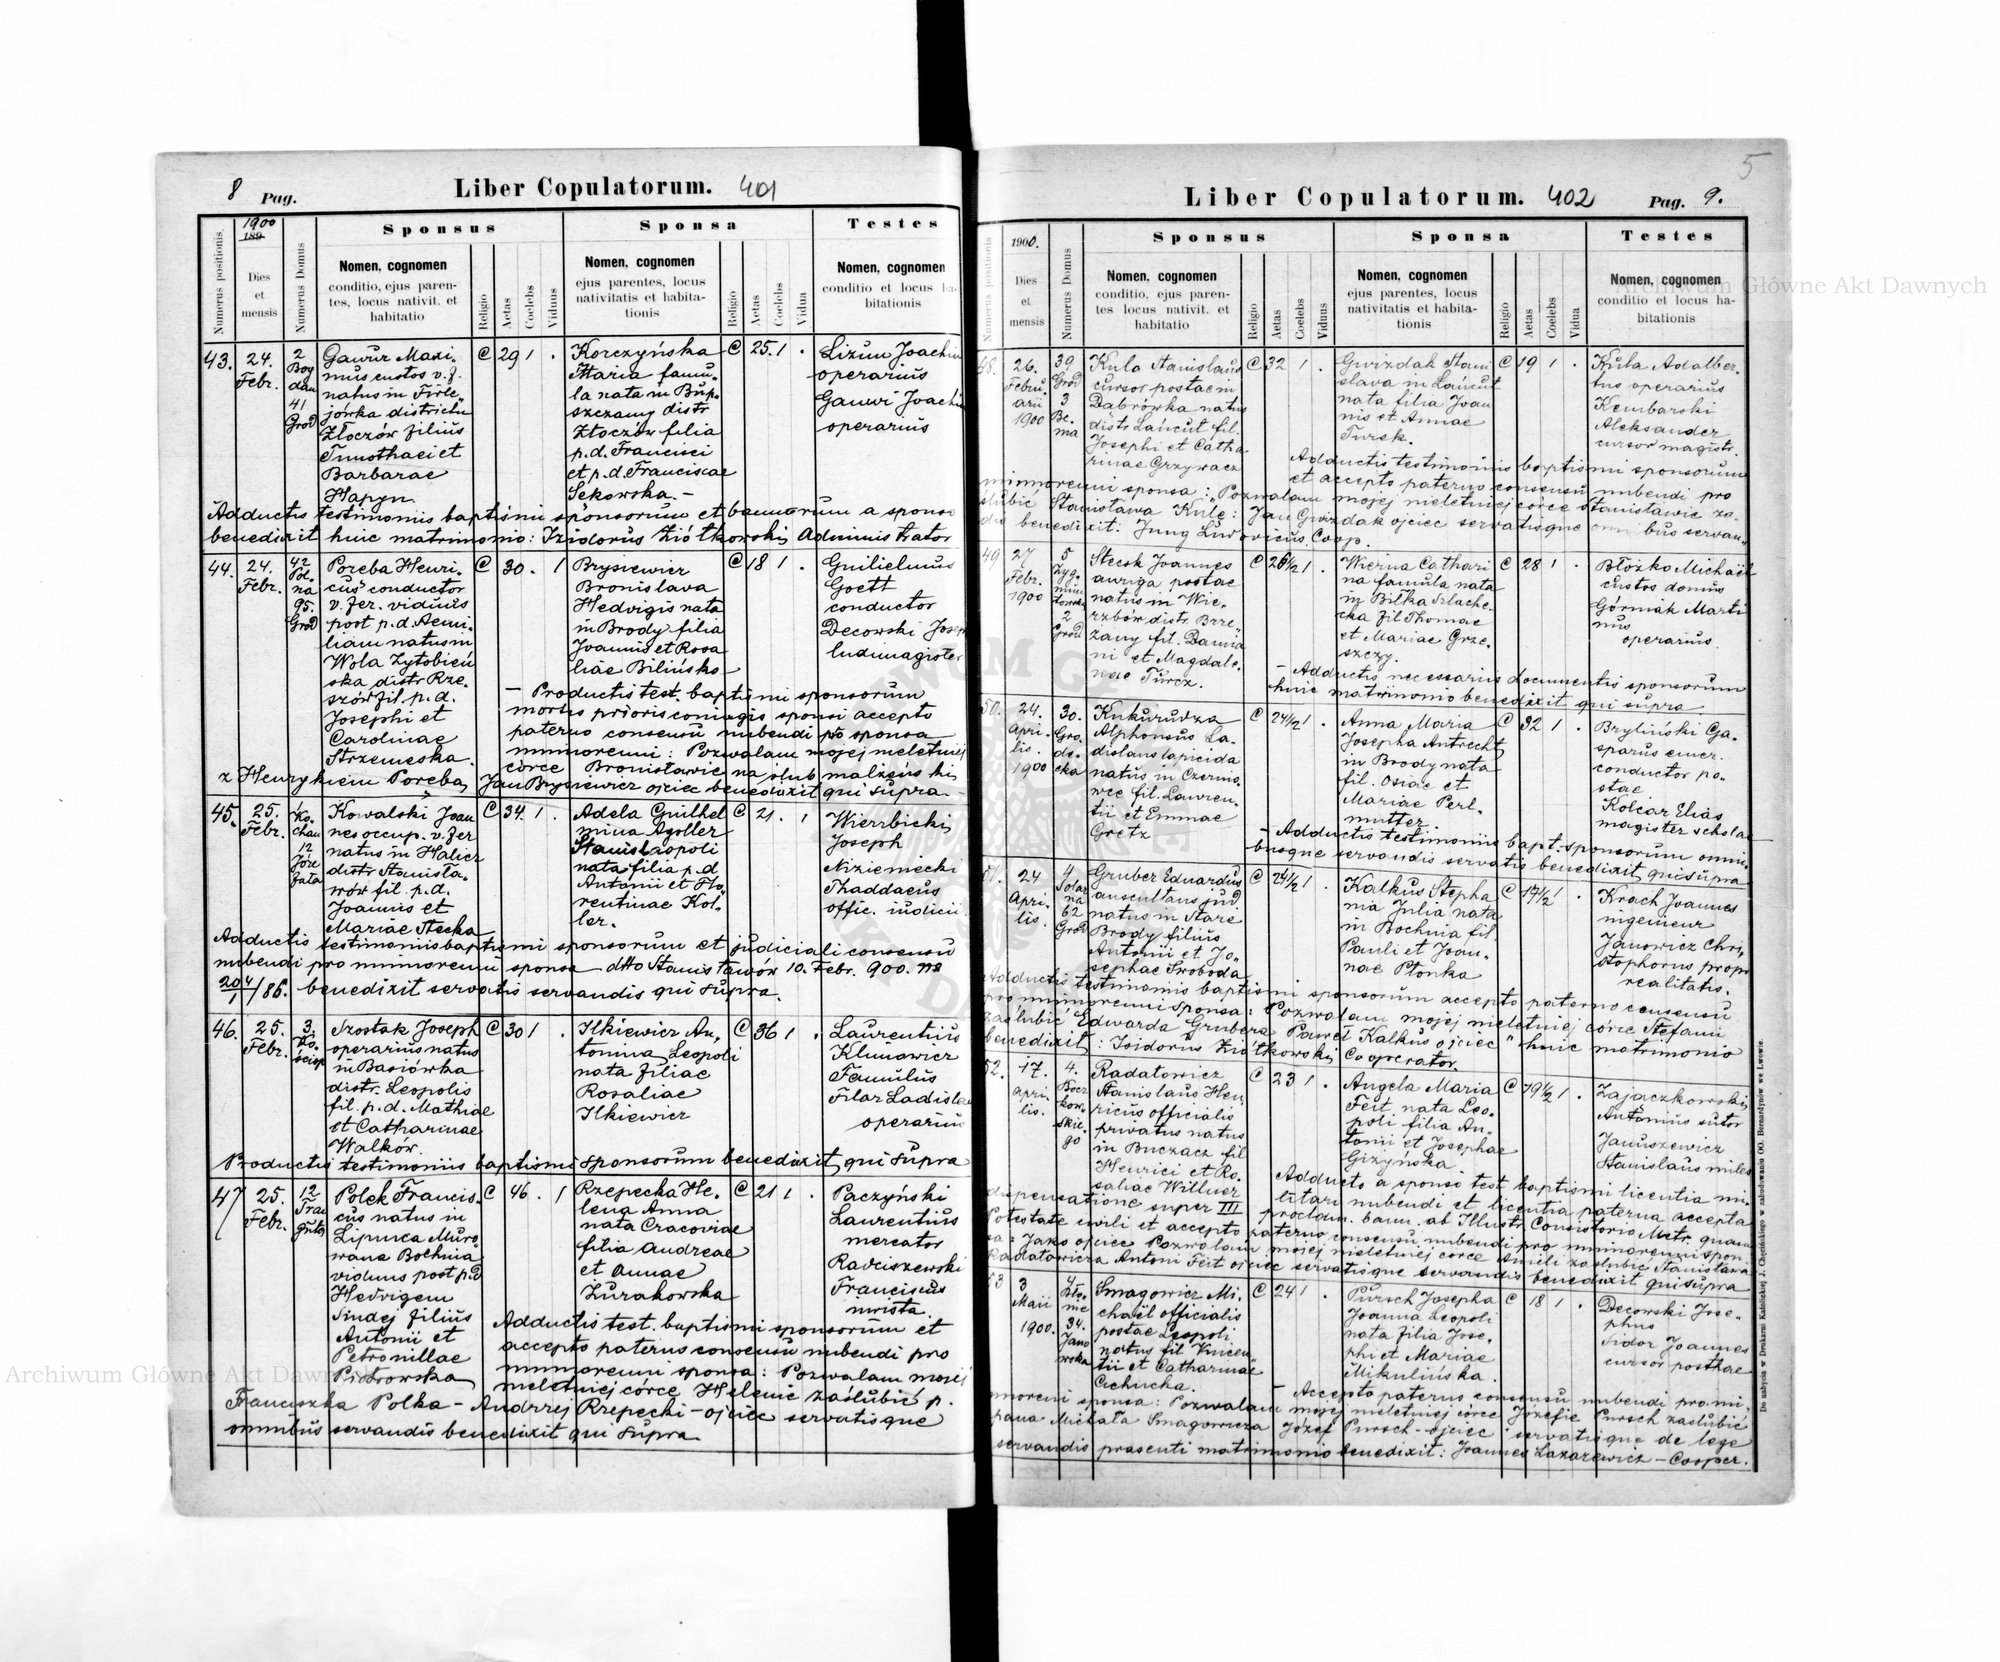 8 Pag.
Liber Copulatorum. 401
Numerus positionis.
1900
189
Dies
et
mensis
Numerus Domus
Sponsus
Nomen, cognomen
conditio, ejus paren-
tes, locus nativit. et
habitatio
Religio
Aetas
Coelebs
Viduus
Sponsa
Nomen, cognomen
ejus parentes, locus
nativitatis et habita-
tionis
Religio
Aetas
Coelebs
Vidua
Testes
Nomen, cognomen
conditio et locus ha-
bitationis
43.
24.
Febr.
2
Bog
dan
41
Grod
Gawur Maxi-
mus custos v. f.
natus in Firle-
jówka districtu
Złoczów filius
Timothaei et
Barbarae
Hapyn
C 29 1 .
Korczyńska
Maria famu-
la nata in Bup-
szczany distr
Złoczów filia
p. d. Francisci
et p. d. Franciscae
Sekowska. -
C 25. 1 .
Lizun Joachim
operarius
Gawur Joachim
operarius
Adductis testimoniis baptismi sponsorum et bannorum a sponso
benedixit huic matrimonio: Izidorus Ziółkowski, Administrator
44.
24.
Febr.
42
Pol-
na
95.
Grod
Poreba Henri-
cus conductor
v. fer. viduus
post p. d. Aemi-
liam natus in
Wola Zytobień
ska distr Rze-
szów fil. p. d.
Josephi et
Carolinae
Strzemeska.
C 30. . 1
Brysiewicz
Bronislava
Hedvigis nata
in Brody filia
Joannis et Rosa
liae Bilińska
C 18 1 .
Guilielmus
Goett
conductor
Decowski Joseph
ludimagister
- Productis test. baptismi sponsorum
mortis prioris coniugis sponsi accepto
paterno consensu nubendi pro sponsa
minorenni: Pozwalam mojej nieletniej
córce Bronisławie na ślub małżeński
z Henrykiem Poreba, Jan Brysiewicz ojciec benedixit qui supra. -
45.
25.
Febr.
Ko-
chan
12
Józe
fata
Kowalski Joan
nes occup. v. fer
natus in Halicz
distr Stanisła-
wów fil. p. d.
Joannis et
Mariae Stecka
C 34. 1 .
Adela Guilhel
mina Agoller
Stanislaopoli
nata filia p. d
Antonii et Flo-
rentinae Kol-
ler.
C 21. 1
Wierzbicki
Joseph
Niziemiecki
Thaddaeus
offic. iudicii
Adductis testimoniis baptismi sponsorum et judiciali consensu
nubendi pro minorenni sponsa dtto Stanisławów 10. Febr. 900.
benedixit servatis servandis qui supra.
46.
25.
Febr.
3.
Szostak Joseph
operarius natus
in Basiówka
distr. Leopolis
fil. p. d. Mathiae
et Catharinae
Walków.
C 30 1 .
Ilkiewicz An-
tonina Leopoli
nata filiae
Rosaliae
Ilkiewicz
C 36 1 .
Laurentius
Klimowicz
Famulus
Filar Ladislaus
operarius
Productis testimoniis baptismi sponsorum benedixit, qui supra
47
25.
Febr.
12
Trau
gutta
Polek Francis-
cus natus in
Lipnica Muro-
wana Bochnia
viduus post p. d
Hedvigem
Sindej filius
Antonii et
Petronillae
Piotrowska
C 46. . 1
Rzepecka He-
lena Anna
nata Cracoviae
filia Andreae
et Annae
Żurakowska
C 21 1 .
Paczyński
Laurentius
mercator
Radziszewski
Franciscus
Adductis test. baptismi sponsorum et
accepto paterno consensu nubendi pro
minorenni sponsa: Pozwalam mojej
nieletniej córce Helenie zaślubić p.
Franciszka Polka - Andrzej Rzepecki - ojciec servatisque
omnibus servandis benedixit qui supra
5
Liber Copulatorum. 402
Pag. 9.
Numerus positionis
1900.
Dies
et
mensis
Numerus Domus
Sponsus
Nomen, cognomen
conditio, ejus paren-
tes locus nativit. et
habitatio
Religio
Aetas
Coelebs
Viduus
Sponsa
Nomen, cognomen
ejus parentes, locus
nativitatis et habita-
tionis
Religio
Aetas
Coelebs
Vidua
Testes
Nomen, cognomen
conditio et locus ha-
bitationis
48.
26.
Febru
arii
1900
39
Grod
3
Be-
ma
Kula Stanislaus
cursor postae in
Dabrówka natus
distr Łańcut fil.
Josephi et Catha
rinae Grzywacz
C 32 1 .
Gwizdak Stani
slava in Łańcut
nata filia Joan
nis et Annae
Turek.
C 19 1 .
Kula Adalber-
tus operarius
Kembarski
Aleksander
cursor magistr.
Adductis testimoniis baptismi sponsorum
et accepto paterno consensu nubendi pro
minorenni sponsa: "Pozwalam mojej nieletniej córce Stanisławie za-
ślubić Stanisława Kulę: Jan Gwizdak ojciec servatisque omnibus servan-
dis benedixit: Jung Ludovicus, Coop.
49
27
Febr.
1900
5
Zyg-
mun
towska
2
Grod
Stecsk Joannes
auriga postae
natus in Wie-
rzbów distr. Brze-
zany fil. Damia
ni et Magdale-
nae Turcz.
C 26½ 1 .
Wierna Cathari
na famula nata
in Bilka szlache-
cka fil Thomae
et Mariae Grze-
szczy.
C 28 1 .
Błozko Michaël
custos domus
Górniak Marti
nus
operarius.
- Adductis necessariis documentis sponsorum
huic matrimonio benedixit qui supra
50.
24.
Apri-
lis.
1900
30.
Gro-
de-
cka
Kukurudza
Alphonsus La-
dislaus lapicida
natus in Czernio-
wce fil. Lauren-
tii et Emmae
Gretz
C 24½ 1 .
Anna Maria
Josepha Antrecht
in Brody nata
fil. Osiae et
Mariae Perl-
mutter
C 32 1 .
Bryliński Ga-
sparus emer.
conductor po-
stae
Kolcar Elias
magister scholae
- Adductis testimoniis bapt. sponsorum omni-
busque servandis servatis benedixit, qui supra
51.
24
Apri-
lis.
4
Solar
na
62
Grod
Gruber Eduardus
auscultans jud.
natus in Stare
Brody filius
Antonii et Jo-
sephae Swoboda
C 24½ 1 .
Kalkus Stepha
nia Julia nata
in Bochnia fil.
Pauli et Joan-
nae Płonka
C 17½ 1 .
Krach Joannes
ingenieur
Janowicz Chri-
stophorus propr
realitatis.
Adductis testimoniis baptismi sponsorum accepto paterno consensu
pro minorenni sponsa: Pozwalam mojej nieletniej córce Stefanii
zaślubić Edwarda Grubera Paweł Kalkus ojciec " huic matrimonio
benedixit: Isidorus Ziółkowski, Cooperator.
52.
17.
Apri-
lis.
4.
Bocz
kow-
skie-
go
Radatowicz
Stanislaus Hen
ricus officialis
privatus natus
in Buczacz fil
Henrici et Ro-
saliae Willner
C 23 1 .
Angela Maria
Feit nata Leo-
poli filia An-
tonii et Josephae
Gizyńska
C 19½ 1 .
Zajaczkowski
Antonius sutor
Januszewicz
Stanislaus miles
Adducto a sponso test baptismi licentia mi-
litari nubendi et licentia paterna accepta
dispensatione super III proclam. bann. ab Illustr. Consistorio Metr. quam
Potestate civili et accepto paterno consensu nubendi pro minorenni spon-
sa: Jako ojciec Pozwalam mojej nieletniej córce Anieli zaślubić Stanisława
Radatowicza Antoni Feit ojciec servatisque servandis benedixit qui supra
53
3
Maii
1900.
34.
Jano
wska
Smagowicz Mi-
chaël officialis
postae Leopoli
natus fil Vincen
tii et Catharinae
Cichucka.
C 24 1 .
Pursch Josepha
Joanna Leopoli
nata filia Jose-
phi et Mariae
Mikulinska.
C 18 1 .
Decowski Jose-
phus
Sidor Joannes
cursor postae
- Accepto paterno consensu nubendi pro mi-
norenni sponsa: Pozwalam mojej nieletniej córce Józefie Pursch zaślubić
pana Michała Smagowicza Józef Pursch - ojciec servatisque de lege
servandis praesenti matrimonio benedixit: Joannes Lazarewicz - Cooper.
Do nabycia w Drukarni Katolickiej J. Chęcińskiego w zabudowaniu OO. Bernardynów we Lwowie.
Archiwum Główne Akt Dawnych
Archiwum Główne Akt Dawnych